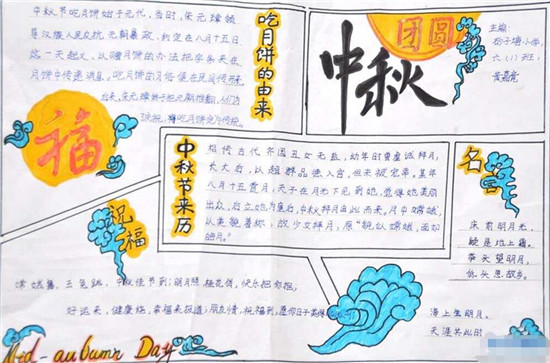 中秋节吃月饼始于元代，当时，朱元璋领
导汉族人民反抗元朝暴政，约定在八月十五日
这一天起义，以赠月饼的办法把字条夹在
月饼中传递消息。吃月饼的习俗便在民间传开来
后来，朱元璋终于把元朝推翻，
福
吃月饼的由来
团圆
中秋
主编：
小学
六（1）班：
中秋节来历
相传古代齐国丑女无盐，幼年时曾虔诚拜月，
长大后，以超群品德入宫，但未被宠幸。某年
八月十五赏月，天子在月光下见到她，觉得她美丽
出众，后立她为皇后，中秋拜月由此而来。月中嫦娥，
以美貌著称，故少女拜月，愿“貌似嫦娥，面如
皓月。”
名言
床前明月光，
疑是地上霜。
举头望明月，
低头思故乡。
海上生明月，
天涯共此时
祝福
中秋佳节到；明月照，桂花俏，快乐把你抱，
好运来，健康绕，幸福来报道；朋友情，祝福到，愿你日子美
Mid-autumn Day